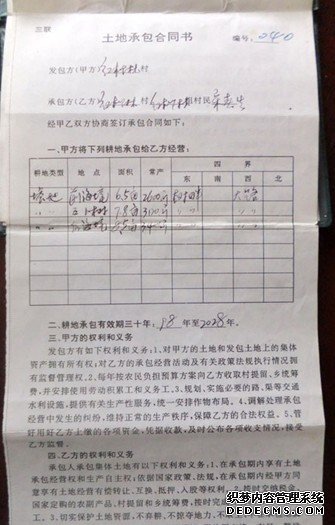 三联
土地承包合同书
编号：040
发包方(甲方) 村
承包方(乙方) 村 组村民
经甲乙双方协商签订承包合同如下：
一、甲方将下列耕地承包给乙方经营：
耕地类型 地点 面积 常产 四界
东 南 西 北
6.5亩 2600斤 大路
7.8亩
二、耕地承包有效期三十年：98年至2028年。
三、甲方的权利和义务
发包方有如下权利和义务：1.对甲方的土地和发包土地上的集体
资产拥有所有权；对乙方的承包经营活动及有关政策法规执行情况拥
有监督管理权。2.每年按农民负担预算方案向乙方收取村提留、乡统筹
费，并安排使用劳动积累工和义务工。3.规划、实施必要的路、渠等交通
水利设施，提供有关生产性服务，统一安排作物布局。4.调解处理承包
经营中发生的纠纷，维持正常的生产秩序，保障乙方的合法权益。5.管
好用好乙方上缴的各项资金，凭据收款，及时公布各项收支情况，接受
乙方监督。
四、乙方的权利和义务
承包人承包集体土地有以下权利和义务：1.在承包期内享有土地
承包经营权和生产自主权；依据国家政策、法规，在承包期内经甲方同
意享有土地经营有偿转让、互换、抵押、入股等权利。2.按时交纳税金、
国家定购的农副产品、村提留和乡统筹费，按时完成
务。3.切实保护土地资源，不弃耕、不掠夺地力、不
织梦内容管理系统
DEDECMS.COM